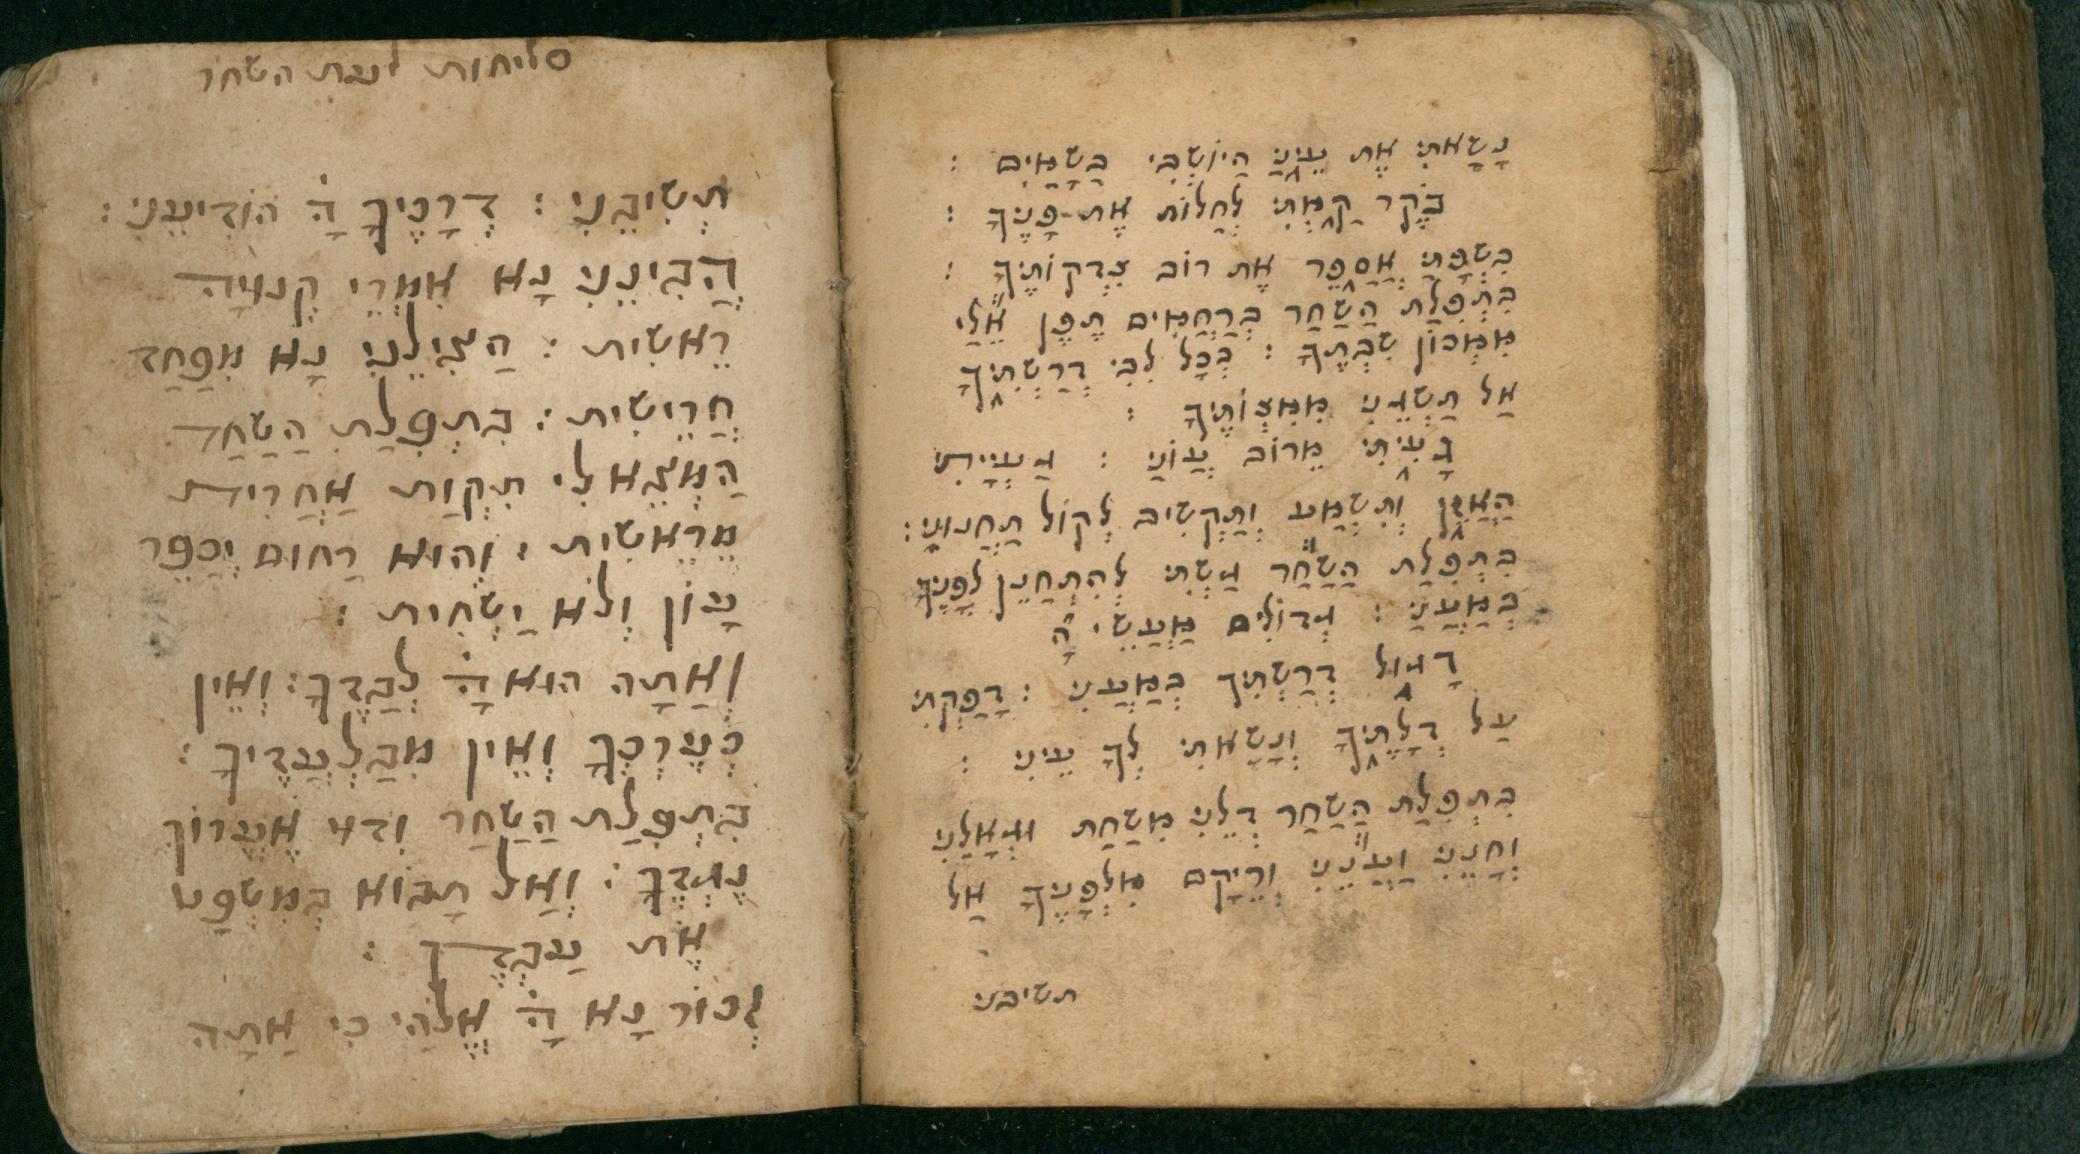 נָשָׂאתִי אֶת עֵינַי הַיוֹשְׁבִי בַשָׁמַיִם :
בֹּקֶר קַמְתִּי לְחַלוֹת אֶת פָּנֶיךָ :
בִּשְׂפָתַי אֲסַפֵּר אֶת רוֹב צִדְקוֹתֶיךָ :
בִּתְפִלַת הַשַׁחַר בְּרַחֲמִים תֶפֶן אֵלַי
מִמְכוֹן שִׁבְתֶּךָ : בְּכָל לִבִּי דְרַשְׁתִּיךָ
אַל תַשְׁגֵנִי מִמִצְוֹתֶיךָ :
גָעִתִי מֵרוֹב עֲוֹנַי : געְיָיתִי
הַאֲזֵן וְתִשְׁמַע וְתַקְשִׁיב לְקוֹל תַחֲנוּנַי :
בִּתְפִלַת הַשַׁחַר גַשְׁתִי לְהִתְחַנֵן לְפָנֶיךָ
בְּמַעֲנַי : גְדוֹלִים מַעֲשֵׂי הָ
דָגוּל דְרַשְׁתִּיךָ בְּמַעֲנִי : דָפַקְתִּי
עַל דְלָתֶיךָ וְנָשָׂאתִי לְךָ עֵינִי :
בִּתְפִלַת הַשַׁחַר דְלֵנִי מִשַׁחַת וּגְאָלֵנִי
וְחָנֵּנִי וַעֲנֵנִי וְרֵיקָם מִלְפָנֶיךָ אַל
תשיבני
סליחות לעת השחר
תְשִׁיבֵנִי : דְרָכֶיךָ הָ הוֹדִיעֵנִי :
הֲבִינֵנִי נָא אִמְרֵי קְנוּיָה
רֵאשִׁית : הַצִילֵנִי נָא מִפַּחַד
חֲרֵישִׁית : בִּתְפִלַת הַשַׁחַר
הַמְצֵא לִי תִקְוַת אַחֲרִית
מֵרֵאשִׁית : וְהוּא רַחוּם יְכַפֵּר
עָוֹן וְלֹא יַשְׁחִית :
וְאַתָה הוּא הָ לְבַדֶךָ : וְאֵין
כְּעֶרְכֶּךָ וְאֵין מִבַּלְעֲדֶיךָ :
בִּתְפִלַת הַשַׁחַר וִדוּי אֶעֱרוֹךְ
נֶגְדֶךָ : וְאַל תָבוֹא בְמִשְׁפָּט
אֶת עַבְדֶךָ :
זְכוֹר נָא הָ אֱלֹהַי כִּי אַתָה